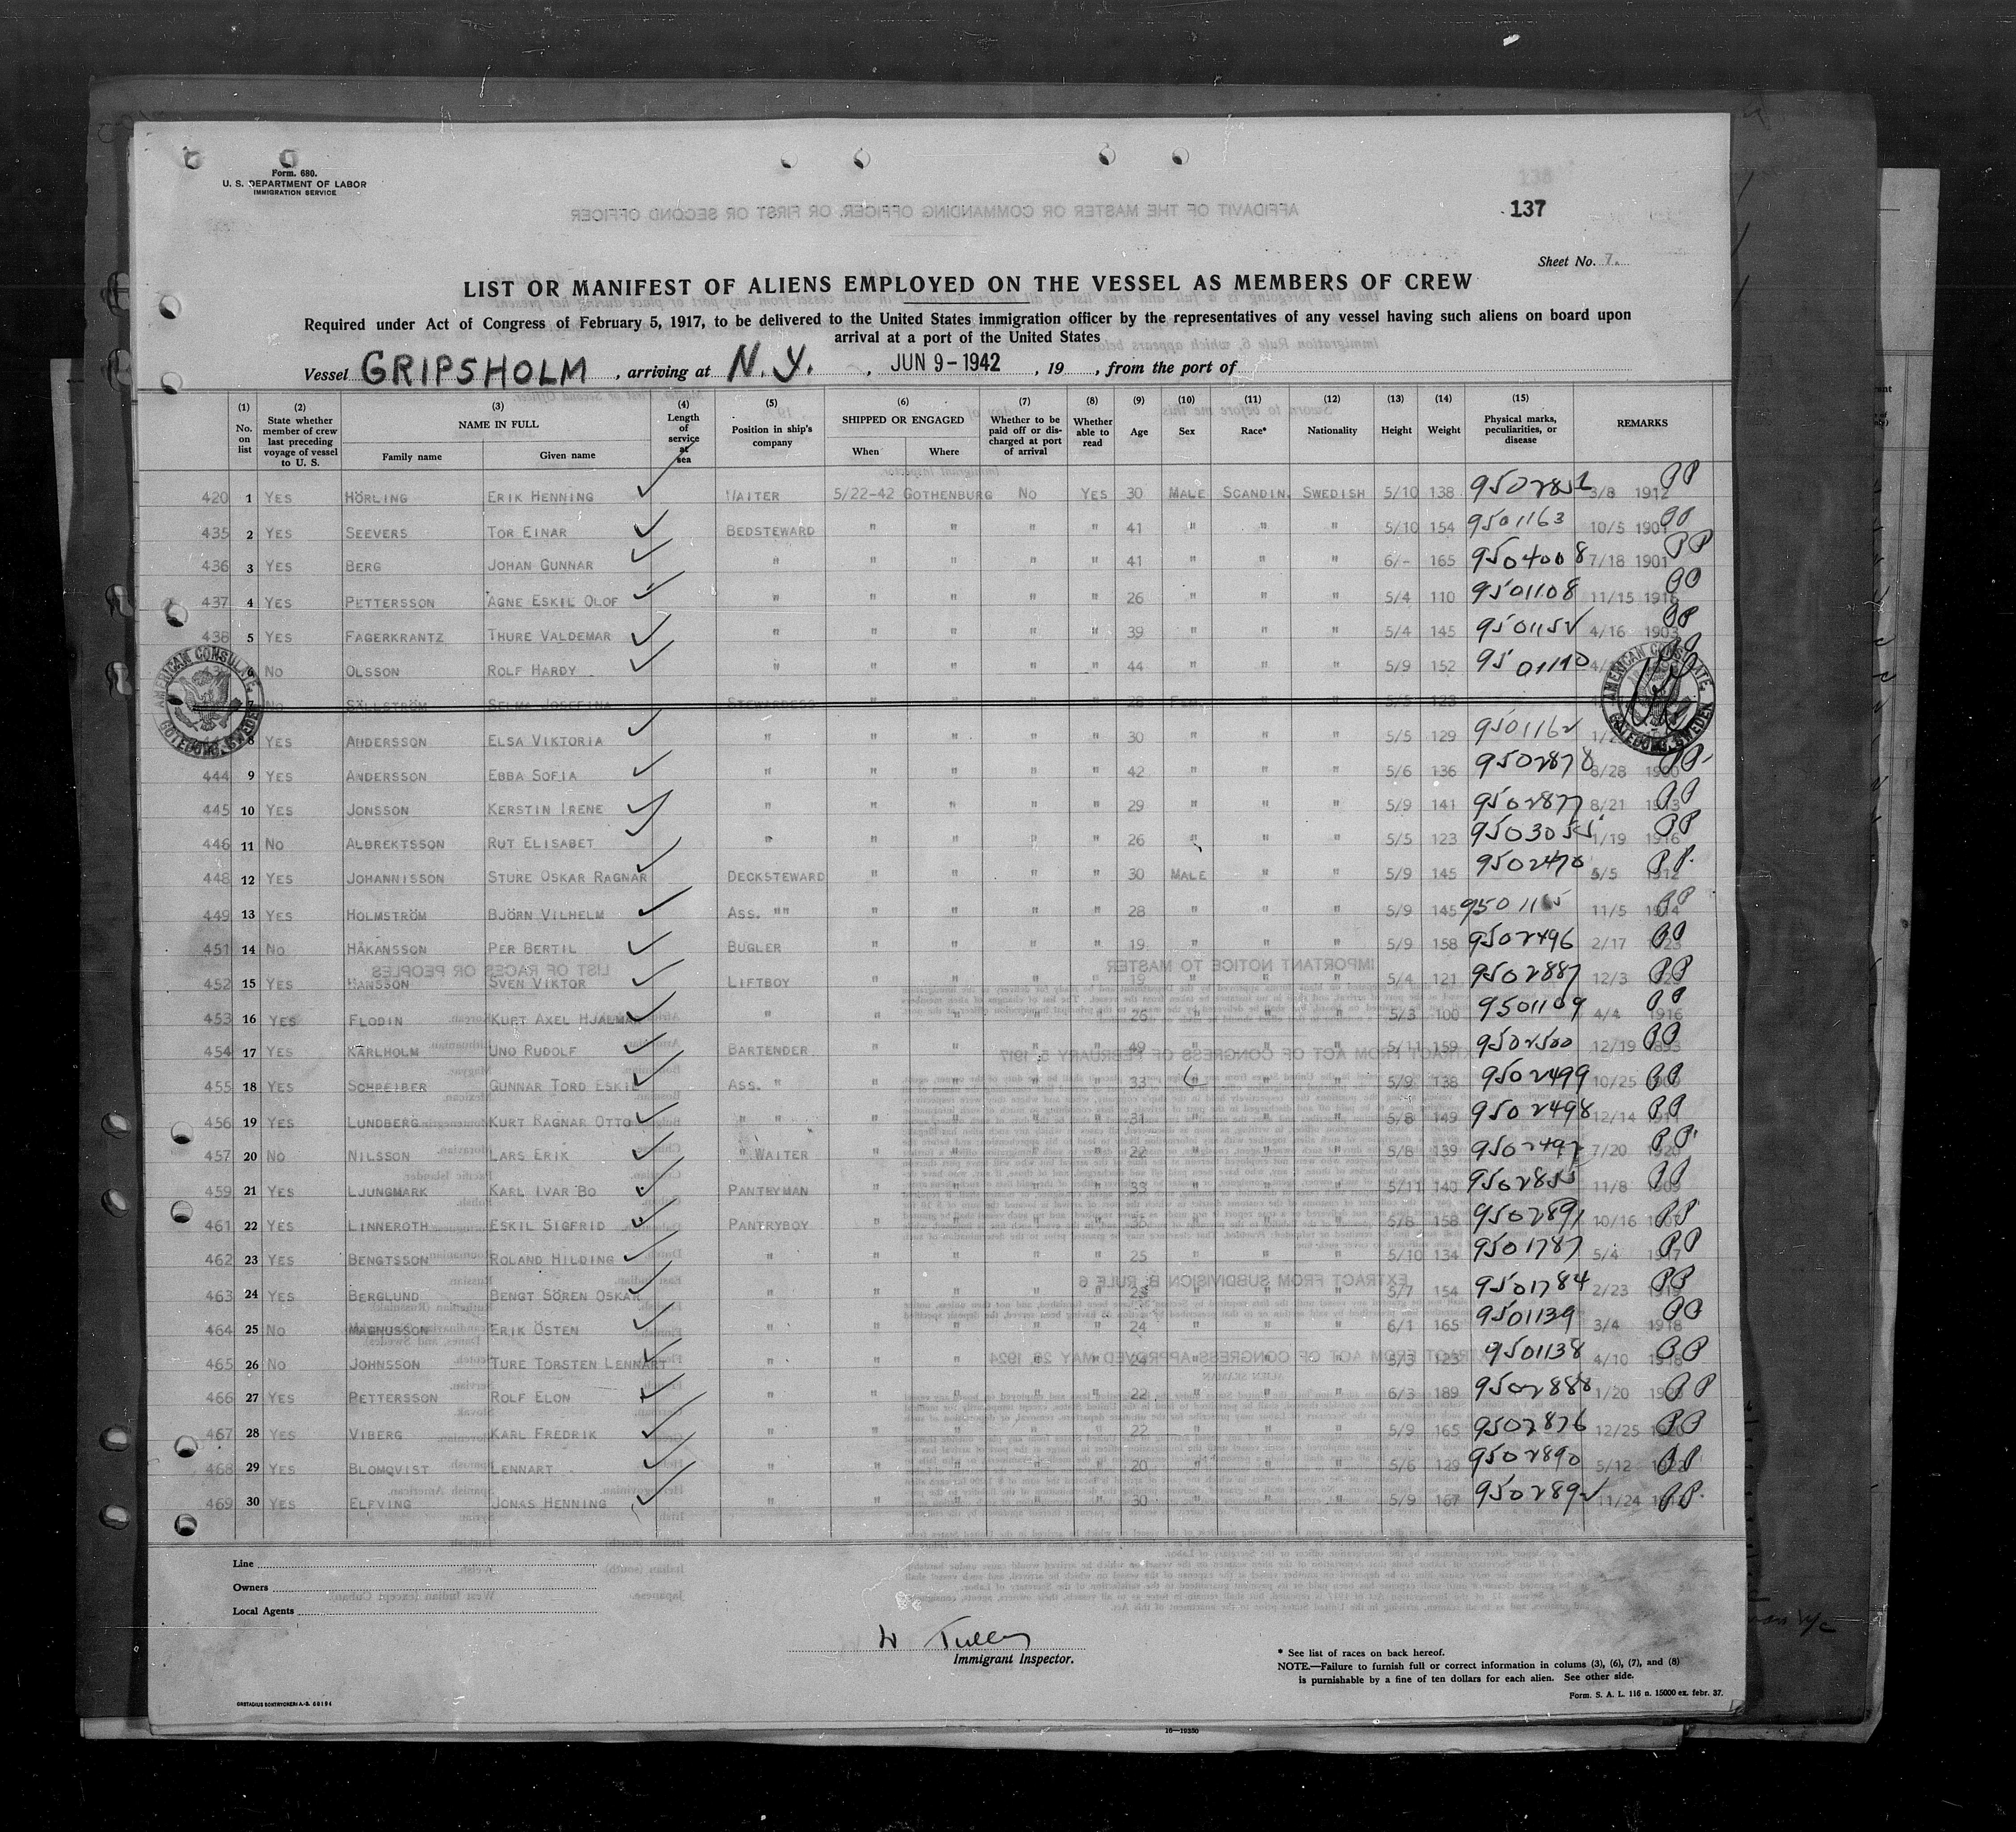 Form. 680.
U. S. DEPARTMENT OF LABOR
IMMIGRATION SERVICE
137
Sheet No. 7.
LIST OR MANIFEST OF ALIENS EMPLOYED ON THE VESSEL AS MEMBERS OF CREW
Required under Act of Congress of February 5, 1917, to be delivered to the United States immigration officer by the representatives of any vessel having such aliens on board upon
arrival at a port of the United States
Vessel GRIPSHOLM, arriving at N.Y., JUN 9-1942, 19 , from the port of
(1) No. on list (2) State whether member of crew last preceding voyage of vessel to U. S. (3) NAME IN FULL Family name Given name (4) Length of service at sea (5) Position in ship's company (6) SHIPPED OR ENGAGED When Where (7) Whether to be paid off or discharged at port of arrival (8) Whether able to read (9) Age (10) Sex (11) Race* (12) Nationality (13) Height (14) Weight (15) Physical marks, peculiarities, or disease REMARKS
420 1 YES HÖRLING ERIK HENNING WAITER 5/22-42 GOTHENBURG NO YES 30 MALE SCANDIN. SWEDISH 5/10 138 9502852 3/8 1912 PP
435 2 YES SEEVERS TOR EINAR BEDSTEWARD " " " " 41 " " " 5/10 154 9501163 10/5 1901 PP
436 3 YES BERG JOHAN GUNNAR " " " " " 41 " " " 6/- 165 9504008 7/18 1901 PP
437 4 YES PETTERSSON AGNE ESKIL OLOF " " " " " 26 " " " 5/4 110 9501108 11/15 1916 PP
438 5 YES FAGERKRANTZ THURE VALDEMAR " " " " " 39 " " " 5/4 145 9501152 4/16 1903 PP
6 NO OLSSON ROLF HARDY " " " " " 44 " " " 5/9 152 9501110
NO SÄLLSTRÖM SELMA JOSEFINA STEWARDESS " " " " 28 FEM. " " 5/5 123
8 YES ANDERSSON ELSA VIKTORIA " " " " " 30 " " " 5/5 129 9501162
444 9 YES ANDERSSON EBBA SOFIA " " " " " 42 " " " 5/6 136 9502878 8/28 1900 PP
445 10 YES JONSSON KERSTIN IRENE " " " " " 29 " " " 5/9 141 9502877 8/21 1913 PP
446 11 NO ALBREKTSSON RUT ELISABET " " " " " 26 " " " 5/5 123 9503055 1/19 1916 PP
448 12 YES JOHANNISSON STURE OSKAR RAGNAR DECKSTEWARD " " " " 30 MALE " " 5/9 145 9502470 5/5 1912 PP
449 13 YES HOLMSTRÖM BJÖRN VILHELM ASS. "" " " " " 28 " " " 5/9 145 9501165 11/5 1914 PP
451 14 NO HÅKANSSON PER BERTIL BUGLER " " " " 19 " " " 5/9 158 9502496 2/17 1923 PP
452 15 YES HANSSON SVEN VIKTOR LIFTBOY " " " " 19 " " " 5/4 121 9502887 12/3 PP
453 16 YES FLODIN KURT AXEL HJALMAR " " " " " 26 " " " 5/3 100 9501109 4/4 1916 PP
454 17 YES KARLHOLM UNO RUDOLF BARTENDER " " " " 49 " " " 5/11 159 9502500 12/19 1893 PP
455 18 YES SCHREIBER GUNNAR TORD ESKIL ASS. " " " " " 33 " " " 5/9 138 9502499 10/25 PP
456 19 YES LUNDBERG KURT RAGNAR OTTO " " " " " " 31 " " " 5/8 149 9502498 12/14 1911 PP
457 20 NO NILSSON LARS ERIK " WAITER " " " " 22 " " " 5/8 139 9502497 7/20 1920 PP
459 21 YES LJUNGMARK KARL IVAR BO PANTRYMAN " " " " 33 " " " 5/11 140 9502855 11/8 1909 PP
461 22 YES LINNEROTH ESKIL SIGFRID PANTRYBOY " " " " 35 " " " 5/8 158 9502891 10/16 PP
462 23 YES BENGTSSON ROLAND HILDING " " " " " 25 " " " 5/10 134 9501787 5/4 1917 PP
463 24 YES BERGLUND BENGT SÖREN OSKAR " " " " " 23 " " " 5/7 154 9501784 2/23 1919 PP
464 25 NO MAGNUSSON ERIK ÖSTEN " " " " " 24 " " " 6/1 165 9501139 3/4 1918 PP
465 26 NO JOHNSSON TURE TORSTEN LENNART " " " " " 24 " " " 5/3 123 9501138 4/10 1918 PP
466 27 YES PETTERSSON ROLF ELON " " " " " 22 " " " 6/3 189 9502888 1/20 1920 PP
467 28 YES VIBERG KARL FREDRIK " " " " " 22 " " " 5/9 165 9502876 12/25 PP
468 29 YES BLOMQVIST LENNART " " " " " 20 " " " 5/6 129 9502890 5/12 PP
469 30 YES ELFVING JONAS HENNING " " " " " 30 " " " 5/9 167 9502892 11/24 PP
AMERICAN CONSULATE, GOTEBORG, SWEDEN
AMERICAN CONSULATE, GOTEBORG, SWEDEN
Line
Owners
Local Agents
W Tulley
Immigrant Inspector.
* See list of races on back hereof.
NOTE.—Failure to furnish full or correct information in colums (3), (6), (7), and (8)
is punishable by a fine of ten dollars for each alien. See other side.
Form. S. A. L. 116 n. 15000 ex. febr. 37.
16—19350